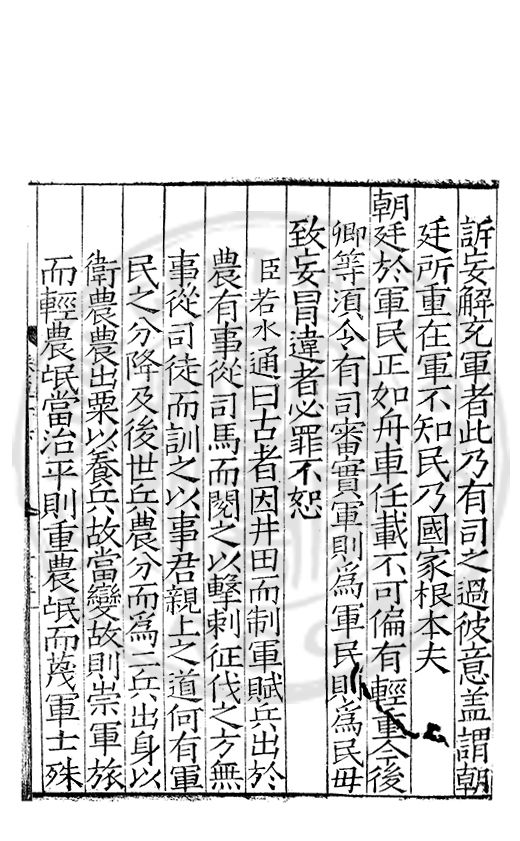 訴妄解充軍者此乃有司之過彼意盖謂朝
廷所重在軍不知民乃國家根本夫
朝廷於軍民正如舟車任載不可偏有輕重今後
卿等湏令有司審實軍則爲軍民則爲民毋
致妄冒違者必罪不恕
臣若水通曰古者因井田而制軍賦兵出於
農有事從司馬而閱之以擊刺征伐之方無
事從司徒而訓之以事君親上之道何有軍
民之分降及後世兵農分而爲二兵出身以
衛農農出粟以養兵故當變故則崇軍旅
而輕農氓當治平則重農氓而蔑軍士殊